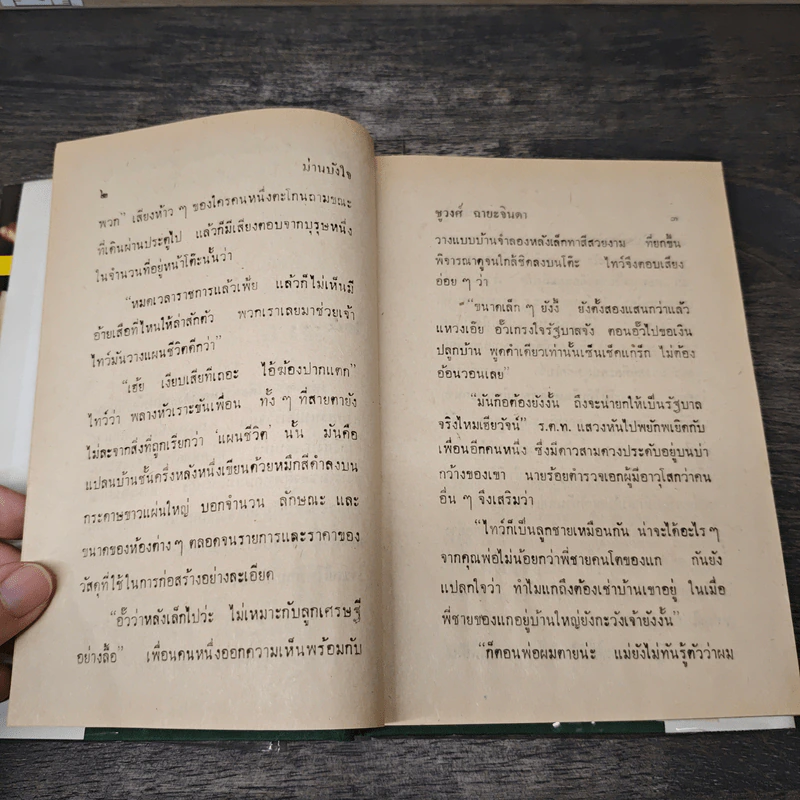 ๒
ม่านบังใจ
พวก” เสียงห้าว ๆ ของใครคนหนึ่งตะโกนถามขณะ
ที่เดินผ่านประตูไป แล้วก็มีเสียงตอบจากบุรุษหนึ่ง
ในจำนวนที่อยู่หน้าโต๊ะนั้นว่า
“หมดเวลาราชการแล้วเพ้ย แล้วก็ไม่เห็นมี
อ้ายเสือที่ไหนให้ล่าสักตัว พวกเราเลยมาช่วยเจ้า
ไทว์มันวางแผนชีวิตดีกว่า”
“เฮ้ย เงียบเสียทีเถอะ ไอ้ฆ้องปากแตก”
ไทว์ว่า พลางหัวเราะขันเพื่อน ทั้ง ๆ ที่สายตายัง
ไม่ละจากสิ่งที่ถูกเรียกว่า ‘แผนชีวิต’ นั้น มันคือ
แปลนบ้านชั้นครึ่งหลังหนึ่งเขียนด้วยหมึกสีดำลงบน
กระดาษขาวแผ่นใหญ่ บอกจำนวน ลักษณะ และ
ขนาดของห้องต่าง ๆ ตลอดจนรายการและราคาของ
วัสดุที่ใช้ในการก่อสร้างอย่างละเอียด
“อั๊วว่าหลังเล็กไปว่ะ ไม่เหมาะกับลูกเศรษฐี
อย่างลื้อ” เพื่อนคนหนึ่งออกความเห็นพร้อมกับ
ชูวงศ์ ฉายะจินดา
๓
วางแบบบ้านจำลองหลังเล็กทาสีสวยงาม ที่ยกขึ้น
พิจารณาดูจนใกล้ชิดลงบนโต๊ะ ไทว์จึงตอบเสียง
อ่อย ๆ ว่า
“ขนาดเล็ก ๆ ยังงี้ ยังตั้งสองแสนกว่าแล้ว
แหวงเอ๊ย อั๊วเกรงใจรัฐบาลจัง ตอนอั๊วไปขอเงิน
ปลูกบ้าน พูดคำเดียวเท่านั้นเซ็นเช็คแก้รึก ไม่ต้อง
อ้อนวอนเลย”
“มันก็อต้องยังงั้น ถึงจะน่ายกให้เป็นรัฐบาล
จริงไหมเฮียวัจน์” ร.ต.ท. แสวงหันไปพยักพเยิดกับ
เพื่อนอีกคนหนึ่ง ซึ่งมีดาวสามดวงประดับอยู่บนบ่า
กว้างของเขา นายร้อยตำรวจเอกผู้มีอาวุโสกว่าคน
อื่น ๆ จึงเสริมว่า
“ไทว์ก็เป็นลูกชายเหมือนกัน น่าจะได้อะไร ๆ
จากคุณพ่อไม่น้อยกว่าพี่ชายคนโตของแก กันยัง
แปลกใจว่า ทำไมแกถึงต้องเช่าบ้านเขาอยู่ ในเมื่อ
พี่ชายของแกอยู่บ้านใหญ่ยังกะวังเจ้ายังงั้น”
“ก็ตอนพ่อผมตายน่ะ แม่ยังไม่ทันรู้ตัวว่าผม